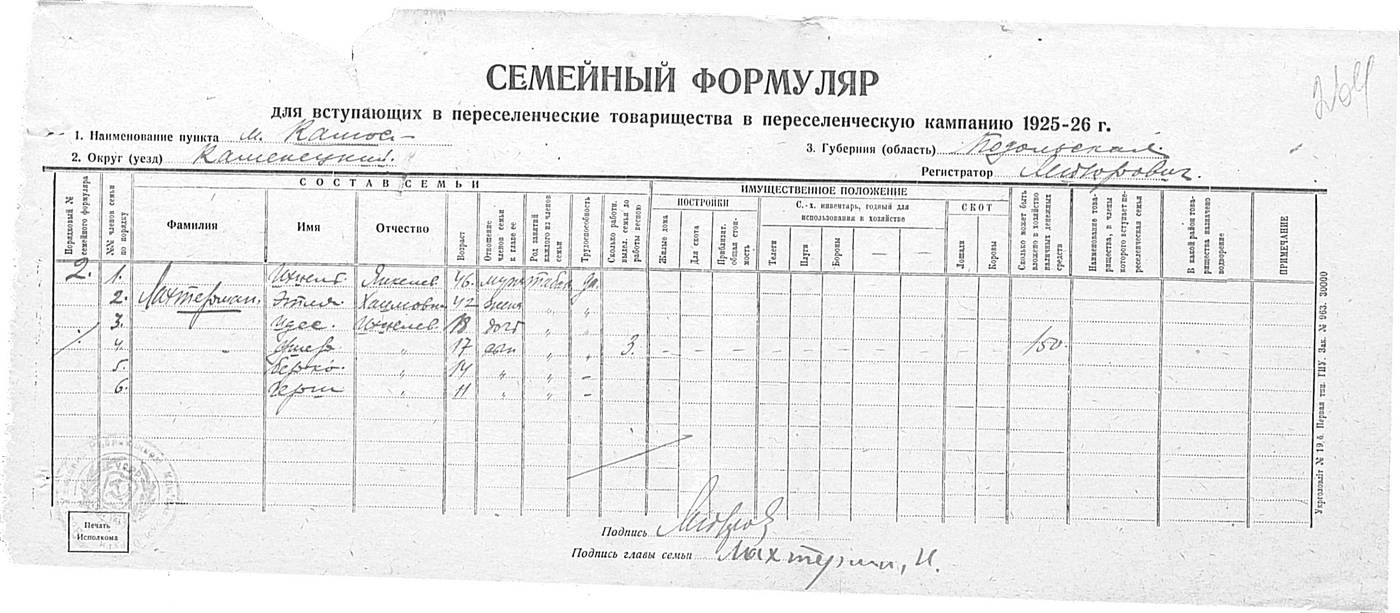 СЕМЕЙНЫЙ ФОРМУЛЯР
для вступающих в переселенческие товарищества в переселенческую кампанию 1925-26 г.
1. Наименование пункта м.
3. Губерния (область) Подольская
2. Округ (уезд) Каменецкий.
Регистратор
Порядковый № семейного формуляра
№№ членов семьи по порядку
СОСТАВ СЕМЬИ
Фамилия
Имя
Отчество
Возраст
Отношение членов семьи к главе ее
Род занятий каждого из членов семьи
Трудоспособность
Сколько работн. выдел. семья до работы весною
ИМУЩЕСТВЕННОЕ ПОЛОЖЕНИЕ
ПОСТРОЙКИ
Жилые дома
Для скота
Приблизит. общая стоимость
С.-х. инвентарь, годный для использования в хозяйстве
Телеги
Плуги
Бороны
СКОТ
Лошади
Коровы
Сколько может быть вложено в хозяйство наличных денежных средств
Наименование товарищества, в члены которого вступает переселенческая семья
В какой район товарищества назначено водворение
ПРИМЕЧАНИЕ
2. 1. 46. муж да.
2. Лахтерман. Этля Хаимовна 42 жена " "
3. Идес. 18 " "
4. " 17 " " 3. – – – – – – – – – – 150.
5. Берко. " 14 " " –
6. Герш " 11 " " –
Печать
Исполкома
Подпись
Подпись главы семьи Лахтерман, И.
Укрголовліт № 19.б. Первая тип. ГИУ. Зак. № 963. 30000